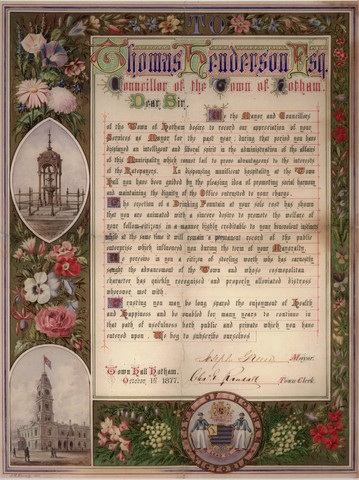 TO
Thomas Henderson Esq.
Councillor of the Town of Hotham.
Dear Sir,
We the Mayor and Councillors
of the Town of Hotham desire to record our appreciation of your
Services as Mayor for the past year: during that period you have
displayed an intelligent and liberal spirit in the administration of the affairs
of this Municipality which cannot fail to prove advantageous to the interests
of the Ratepayers. In dispensing munificent hospitality at the Town
Hall you have been guided by the pleasing idea of promoting social harmony
and maintaining the dignity of the Office entrusted to your charge.
The erection of a Drinking Fountain at your sole cost has shown
that you are animated with a sincere desire to promote the welfare of
your fellow-citizens in a manner highly creditable to your benevolent instincts
while at the same time it will remain a permanent record of the public
enterprise which influenced you during the term of your Mayoralty.
We perceive in you a citizen of sterling worth who has earnestly
sought the advancement of the Town and whose cosmopolitan
character has quickly recognised and properly alleviated distress
wherever met with.
Trusting you may be long spared the enjoyment of Health
and Happiness and be enabled for many years to continue in
that path of usefulness both public and private which you have
entered upon. We beg to subscribe ourselves
Mayor.
Town Hall Hotham.
October 18th 1877.
Town Clerk.
TOWN OF HOTHAM
VICTORIA